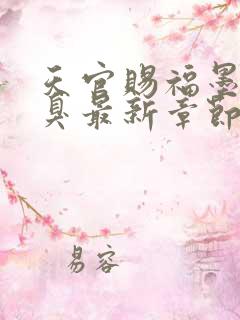 天官赐福墨
真最新章节
易容